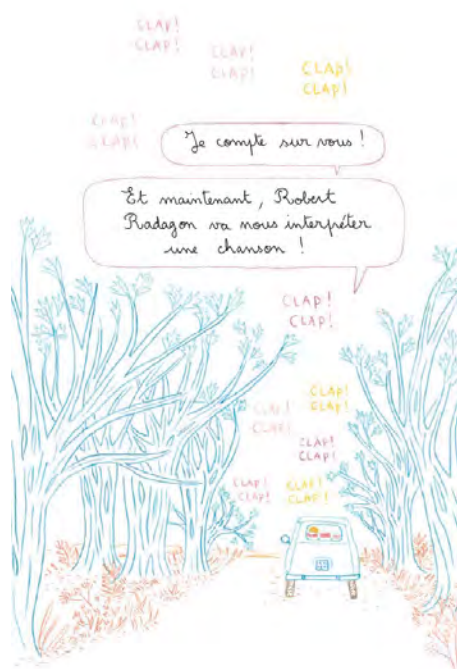 CLAP!
CLAP!
CLAP!
CLAP!
CLAP!
CLAP!
CLAP!
CLAP!
Je compte sur vous !
Et maintenant, Robert
Radagon va nous interpéter
une chanson !
CLAP!
CLAP!
CLAP!
CLAP!
CLAP!
CLAP!
CLAP!
CLAP!
CLAP!
CLAP!
CLAP!
CLAP!